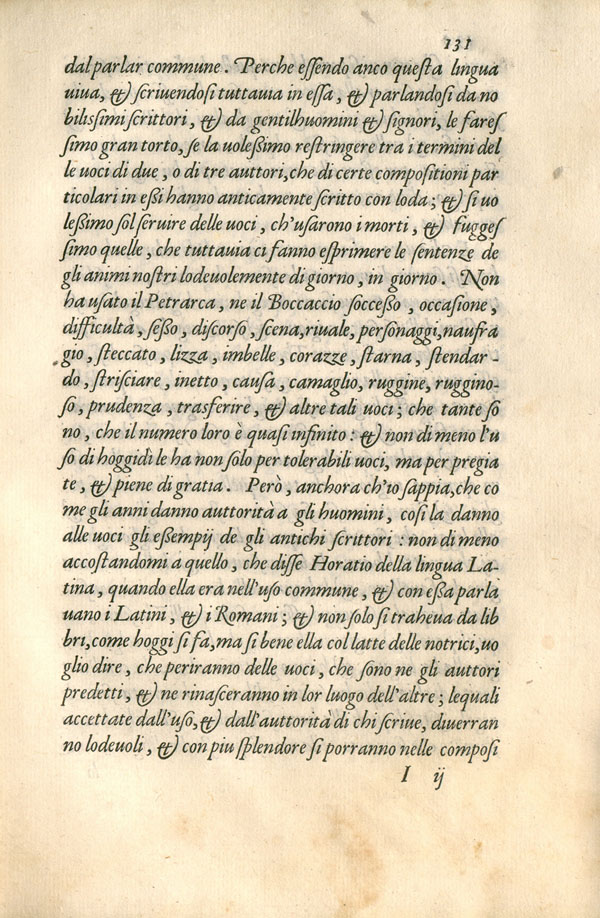 131
dal parlar commune. Perche essendo anco questa lingua
uiua, & scriuendosi tuttauia in essa, & parlandosi da no
bilissimi scrittori, & da gentilhuomini & signori, le fares
simo gran torto, se la uolessimo restringere tra i termini del
le uoci di due, o di tre auttori, che di certe compositioni par
ticolari in essi hanno anticamente scritto con loda; & si uo
lessimo sol seruire delle uoci, ch'usarono i morti, & fuggес
simo quelle, che tuttauia ci fanno esprimere le sentenze de
gli animi nostri lodeuolemente di giorno, in giorno. Non
ha usato il Petrarca, ne il Boccaccio soccesso, occasione,
difficultà, sesso, discorso, scena, riuale, personaggi, naufra
gio, steccato, lizza, imbelle, corazze, starna, stendar-
do, strisciare, inetto, causa, camaglio, ruggine, ruggino-
so, prudenza, trasferire, & altre tali uoci; che tante so
no, che il numero loro è quasi infinito: & non di meno l'u
so di hoggidì le ha non solo per tolerabili uoci, ma per pregia
te, & piene di gratia. Però, anchora ch'io sappia, che co
me gli anni danno auttorità a gli huomini, cosi la danno
alle uoci gli essempij de gli antichi scrittori: non di meno
accostandomi a quello, che disse Horatio della lingua La-
tina, quando ella era nell'uso commune, & con essa parla
uano i Latini, & i Romani; & non solo si traheua da lib
bri, come hoggi si fa, ma si bene ella col latte delle notrici, uo
glio dire, che periranno delle uoci, che sono ne gli auttori
predetti, & ne rinasceranno in lor luogo dell'altre; lequali
accettate dall'uso, & dall'auttorità di chi scriue, diuerran
no lodeuoli, & con piu splendore si porranno nelle composi
I ij